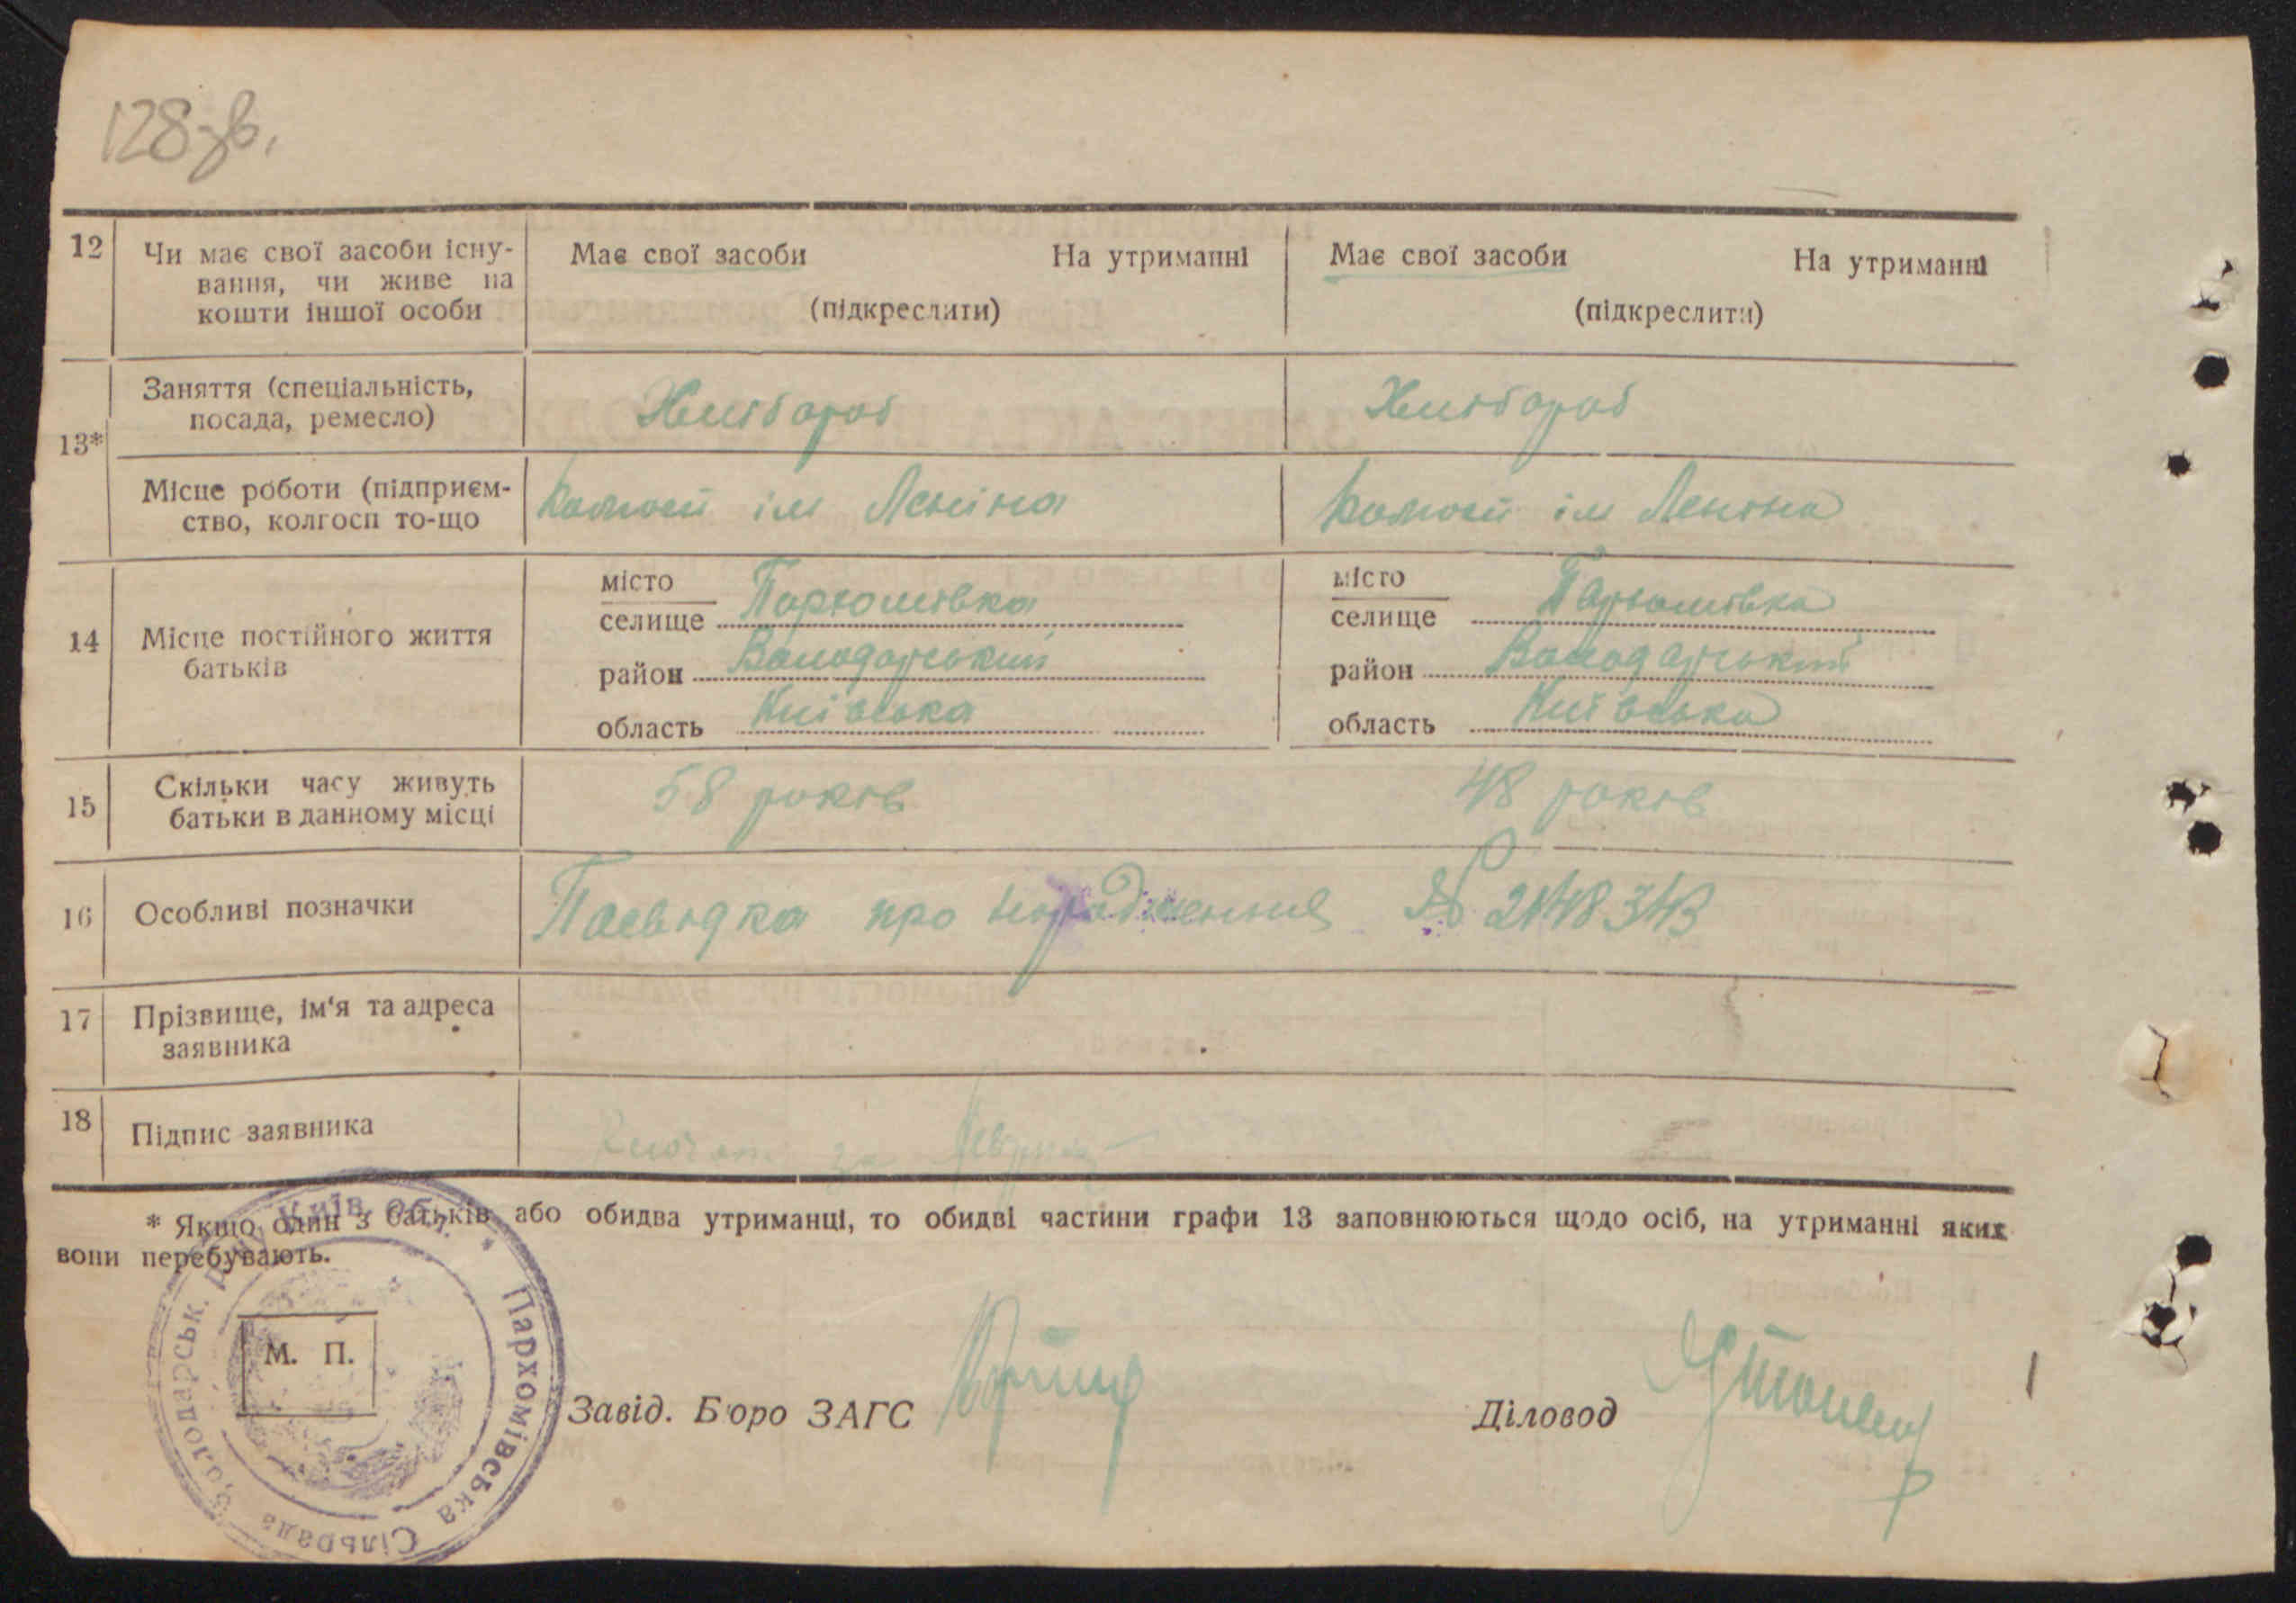 128 зв.
12
Чи має свої засоби існу-
вання, чи живе на
кошти іншої особи
Має свої засоби На утриманні
(підкреслити)
Має свої засоби На утриманні
(підкреслити)
13*
Заняття (спеціальність,
посада, ремесло)
Хлібороб
Хлібороб
Місце роботи (підприєм-
ство, колгосп то-що
Колгосп ім Леніна
Колгосп ім Леніна
14
Місце постійного життя
батьків
місто
селище Пархомівка
район Володарський
область Київська
місто
селище Пархомівка
район Володарський
область Київська
15
Скільки часу живуть
батьки в данному місці
58 років
48 років
16
Особливі позначки
Посвідка про народження №
17
Прізвище, ім‘я та адреса
заявника
18
Підпис заявника
за
* Якщо один з батьків або обидва утриманці, то обидві частини графи 13 заповнюються щодо осіб, на утриманні яких
вони перебувають.
М. П.
Київ. Обл. * Пархомівська Сільрада Володарськ.
Завід. Бюро ЗАГС
Діловод